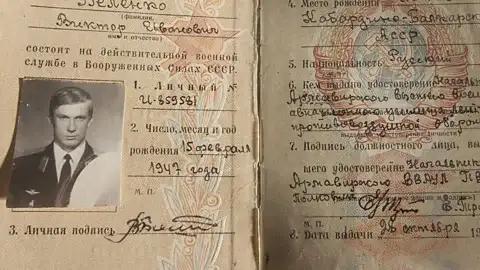 Беленко
(фамилия,
Виктор Иванович
имя и отчество)
состоит на действительной военной
службе в Вооруженных Силах СССР.
1. Личный №
И-859581
2. Число, месяц и год
рождения 15 февраля
1947 года
М. П.
3. Личная подпись
4. Место рождения
Кабардино-Балкарск
АССР
5. Национальность Русский
6. Кем выдано удостоверение Начальн
Армавирского высшего воен
авиационного училища
противовоздушной обороны
7. Подпись должностного лица, вы
шего удостоверение Начальник
Армавирского ВВАУЛ ПВ
Полковник
М. П.
8. Дата выдачи 26 октября